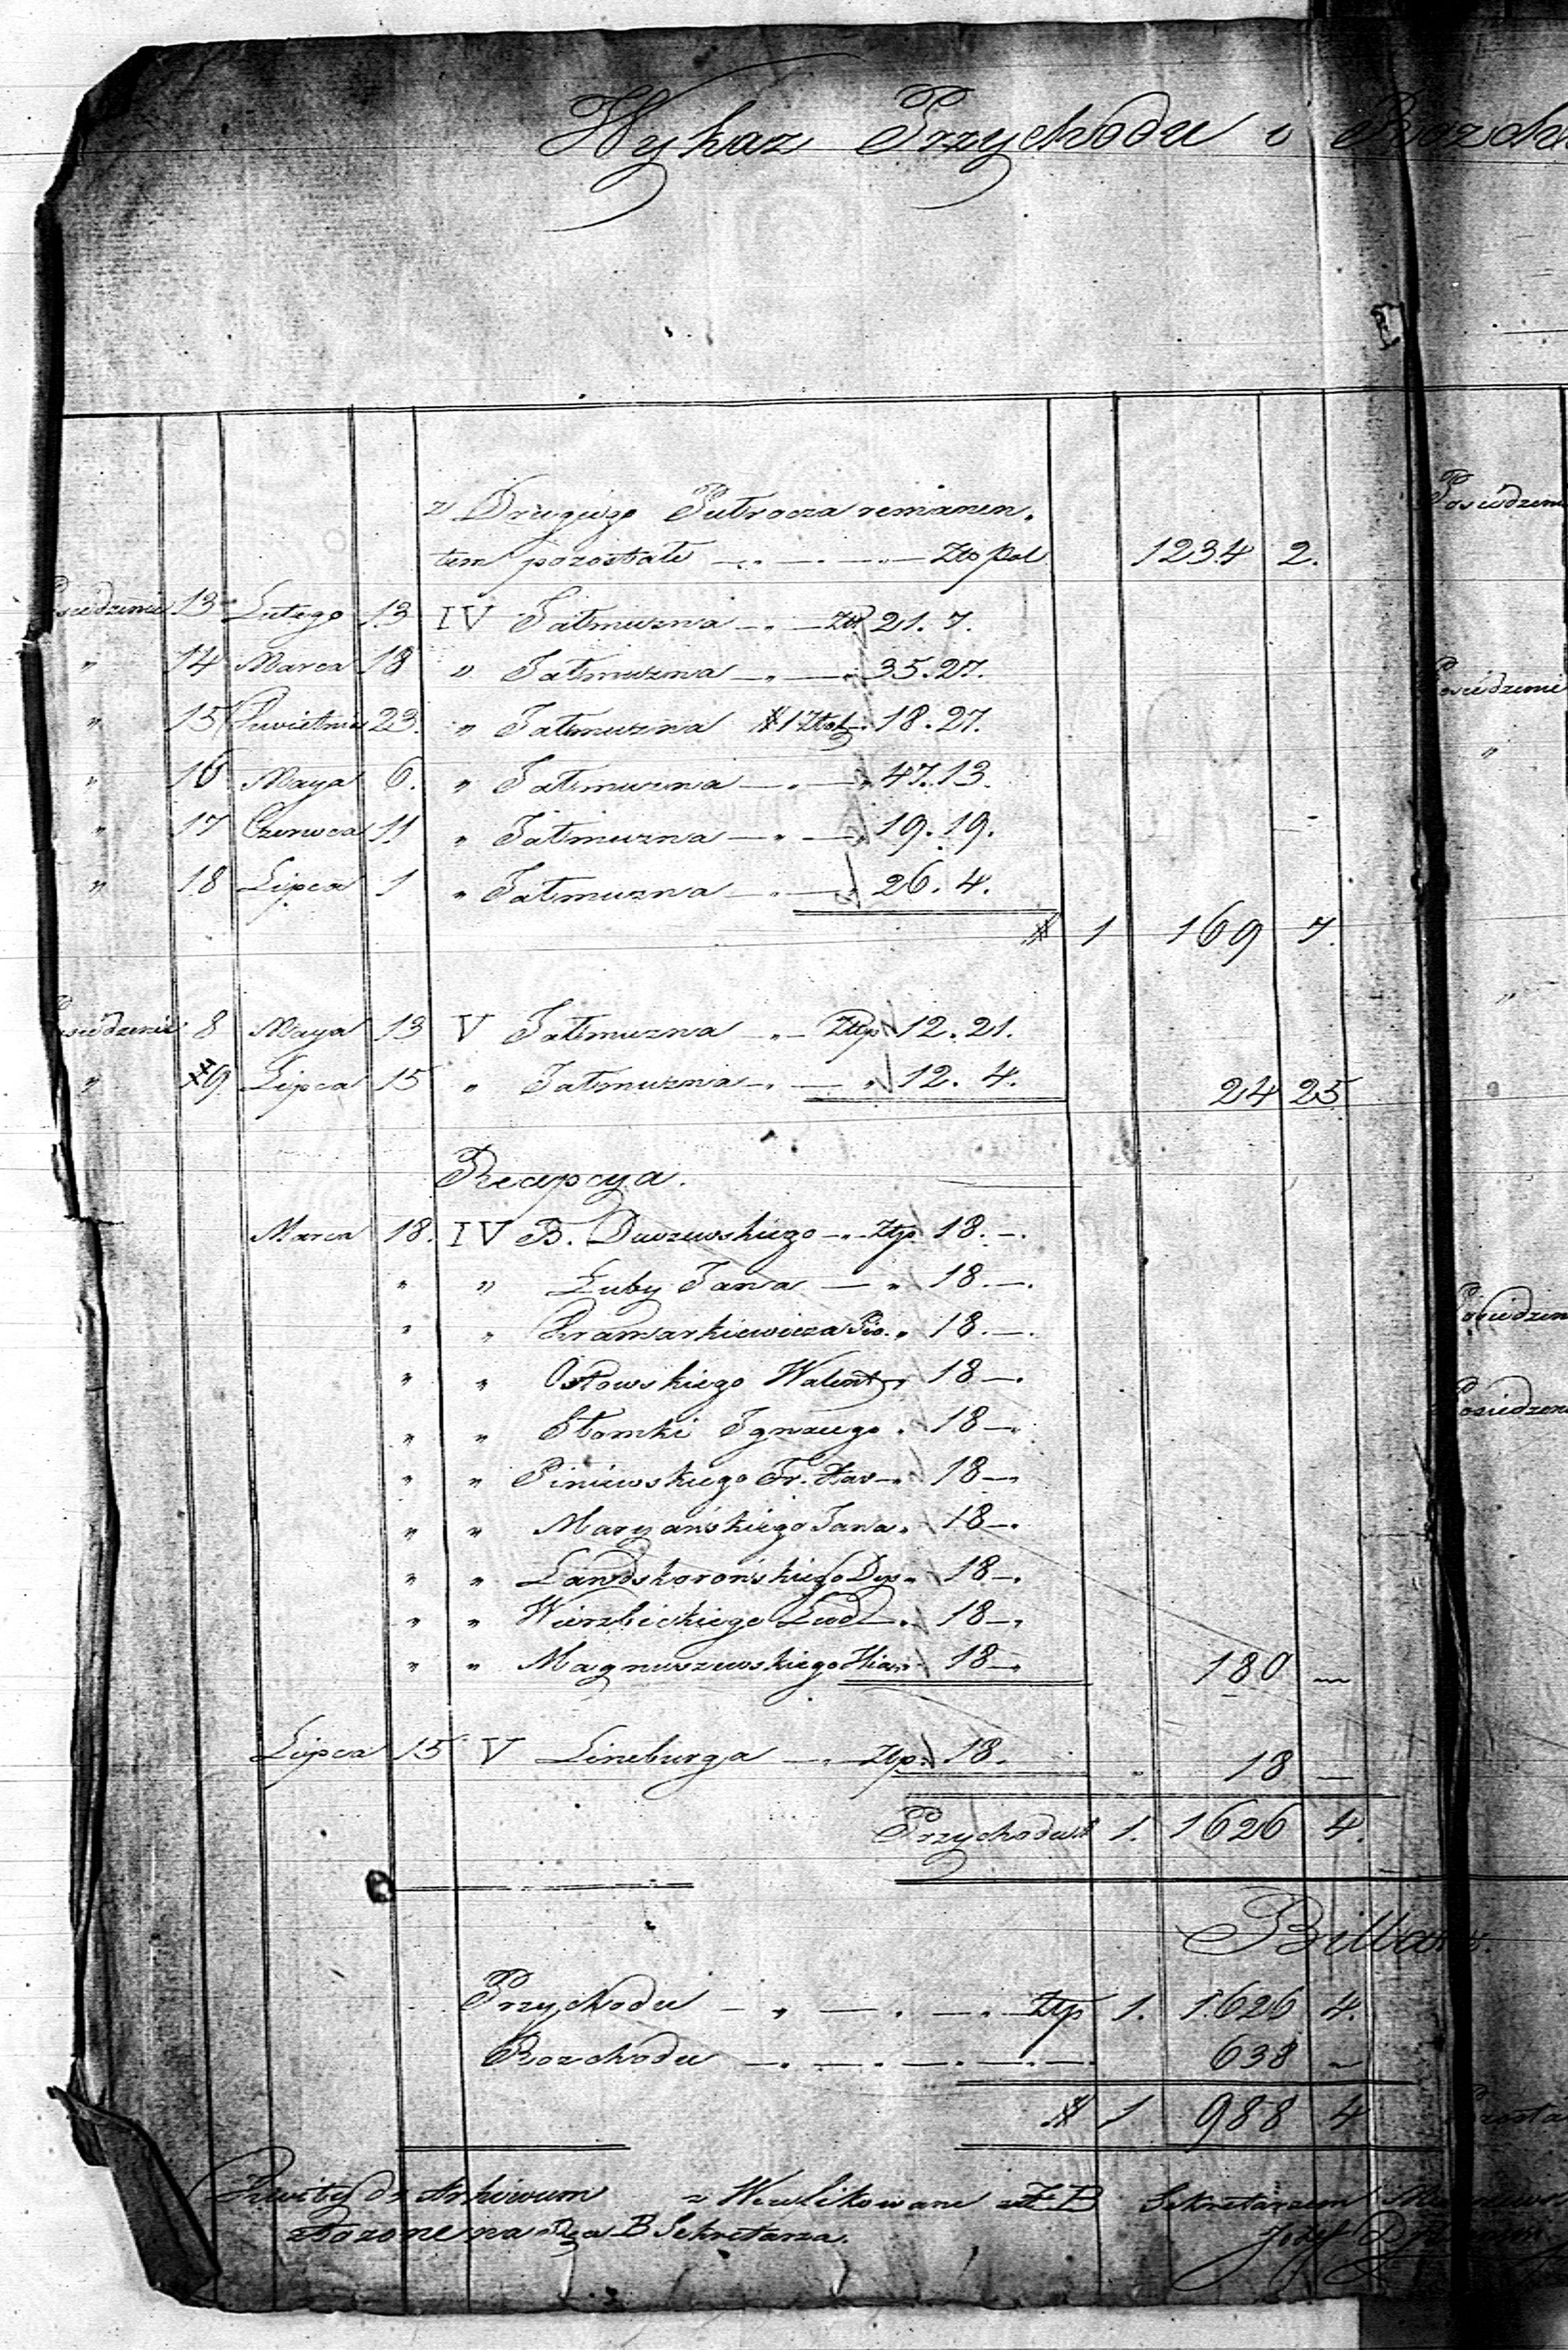 Wykaz Przychodu i Rozcho
z Drugiego Pułrocza remanen-
tem pozostałe Złp Pol 1234 2.
Posiedzenie 13 Lutego 13 IV Jałmużna Złp 21. 7.
" 14 Marca 18 " Jałmużna 35. 27.
" 15 Kwietnia 23. " Jałmużna # 1 Złot 18. 27.
" 16 Maya 6. " Jałmużna " 47. 13.
" 17 Czerwca 11 " Jałmużna " 19. 19.
" 18 Lipca 1 " Jałmużna " 26. 4.
# 1 169 7.
Posiedzenie 8 Maya 13 V Jałmużna Złp 12. 21.
" 9 Lipca 15 " Jałmużna " 12. 4.
24 25
Recepcya.
Marca 18. IV B. Daszewskiego Złp. 18. —.
" " Luby Jana " 18. —.
" " Kramarkiewicza Pio. " 18. —.
" " Osłowskiego Walent " 18 —.
" " Słomki Ignacego " 18 —.
" " Piniewskiego Fr. Xaw " 18 —.
" " Maryańskiego Jana " 18 —.
" " Landskorońskiego Dyo " 18 —.
" " Wierzbickiego Lud " 18 —.
" " Magnuszewskiego Hia " 18 — 180 —
Lipca 15 V Lineburga Złp. 18. 18 —
Przychodu # 1. 1626 4.
Billans.
Przychodu Złp 1. 1626 4.
Rozchodu 638 —
# 1 988 4
Kwity do Arhiwum zWerlikowane B Sekretarzem
złożone na B Sekretarza.
Józef
Posiedzeni
Posiedzeni
"
"
Posiedzen
Posiedzeni